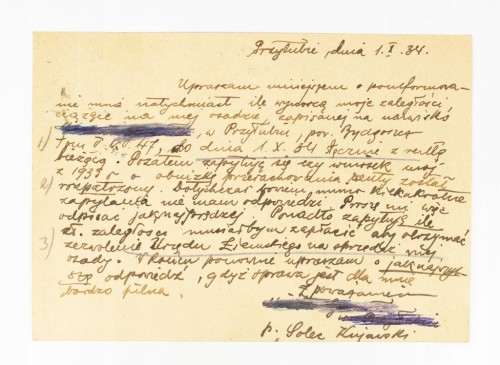 Przyłubie, dnia 1.X.34.
Upraszam niniejszem o poinformowa-
nie mnie natychmiast ile wynoszą moje zaległości
ciążące na mej osadzie, zapisanej na nazwisko
1) w Przyłubiu, pow. Bydgoszcz
do dnia 1.X.34 łącznie z ratą
bieżącą. Pozatem zapytuję się czy wniosek mój
2) z 1933 r. o obniżkę przerachowania renty został
rozpatrzony. Dotychczas bowiem, mimo kilkakrotnego
zapytania nie mam odpowiedzi. Proszę mi więc
odpisać jaknajprędzej. Ponadto zapytuję ile
3) zł. zaległości musiałbym zapłacić aby otrzymać
zezwolenie Urzędu Ziemskiego na sprzedaż mej
osady. W końcu ponownie upraszam o jaknajszyb-
szą odpowiedź, gdyż sprawa jest dla mnie
bardzo pilna.
Z poważaniem
p. Solec Kujawski